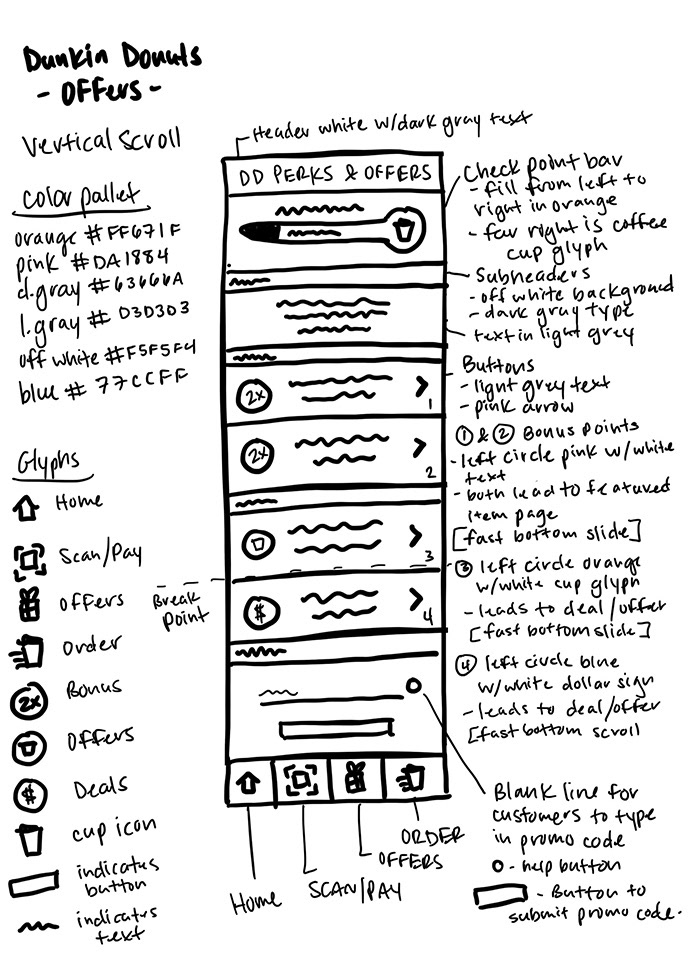 Dunkin Donuts
- OFFers -
Vertical Scroll
color pallet
orange #FF671F
pink #DA1884
d.gray #63666A
l.gray # D3D3D3
off white #F5F5F4
blue # 77CCFF
Glyphs
Home
Scan/Pay
Offers
Order
2x
Bonus
Offers
$
Deals
cup icon
indicates
button
indicates
text
Header white w/dark gray text
DD PERKS & OFFERS
2x
1
2x
2
3
Break
Point
$
4
Home
SCAN/PAY
OFFERS
ORDER
Check point bar
- fill from left to
right in orange
- far right is coffee
cup glyph
Subheaders
- off white background
- dark gray type
text in light grey
Buttons
- light grey text
- pink arrow
1 & 2 Bonus Points
- left circle pink w/white
text
- both lead to featured
item page
[fast bottom slide]
3 left circle orange
w/white cup glyph
- leads to deal/offer
[fast bottom slide]
4 left circle blue
w/white dollar sign
- leads to deal/offer
[fast bottom scroll
Blank line for
customers to type
in promo code
- help button
- Button to
submit promo code.